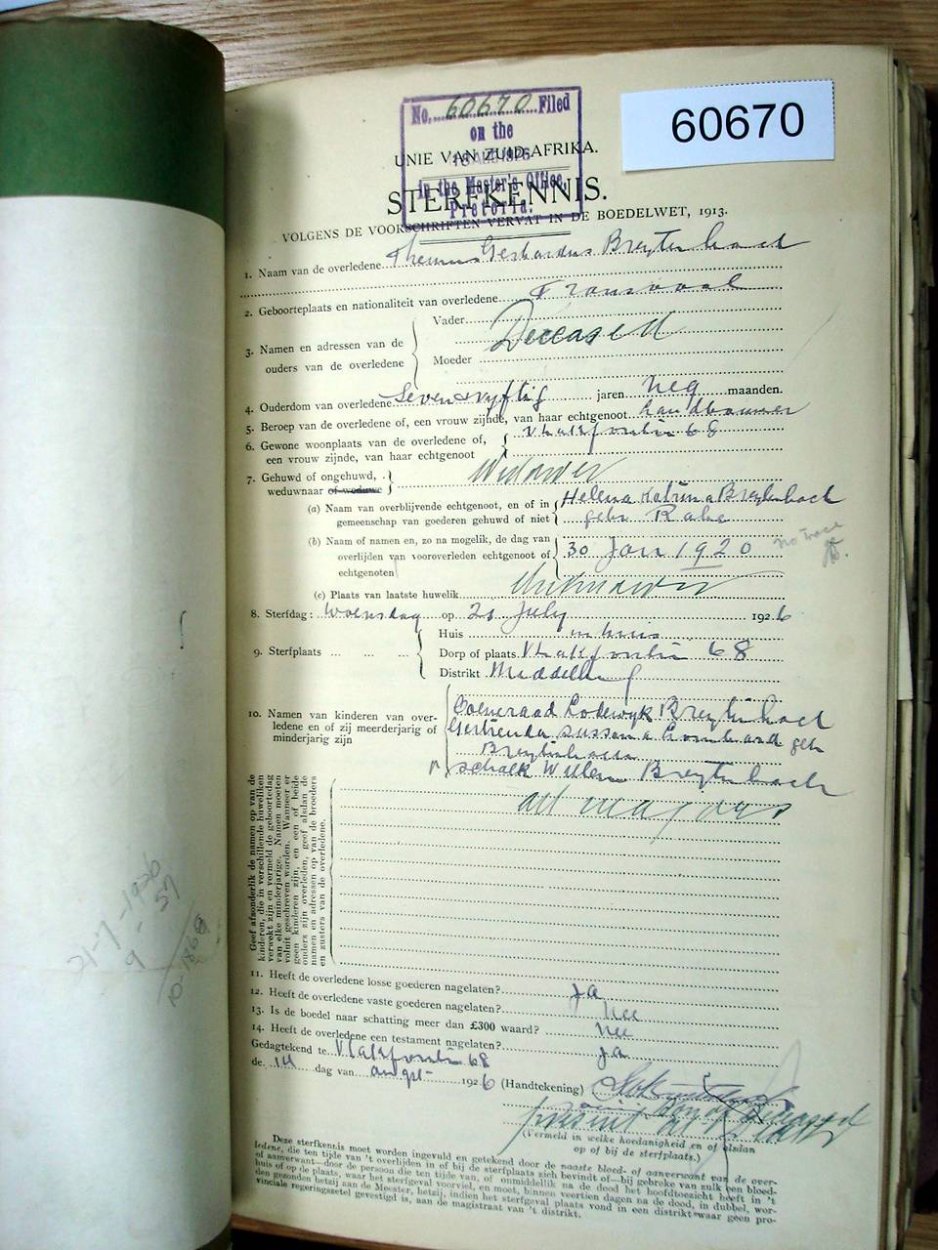 No. 60670 Filed
on the
in the Master's Office,
Pretoria.
60670
UNIE VAN ZUID-AFRIKA.
STERFKENNIS.
VOLGENS DE VOORSCHRIFTEN VERVAT IN DE BOEDELWET, 1913.
1. Naam van de overledene Theunus Gerhardus Breytenbach
2. Geboorteplaats en nationaliteit van overledene Transvaal
3. Namen en adressen van de ouders van de overledene
Vader
Deceased
Moeder
4. Ouderdom van overledene Sevenvyftig jaren neg maanden.
5. Beroep van de overledene of, een vrouw zijnde, van haar echtgenoot landbouwer
6. Gewone woonplaats van de overledene of, een vrouw zijnde, van haar echtgenoot Vlakfontein 68
7. Gehuwd of ongehuwd, weduwnaar of weduwe
Widower
(a) Naam van overblijvende echtgenoot, en of in gemeenschap van goederen gehuwd of niet
Helena Katrina Breytenbach
gebr Rabe
(b) Naam of namen en, zo na mogelik, de dag van overlijden van vooroverleden echtgenoot of echtgenoten
30 Jan 1920
no trace
(c) Plaats van laatste huwelik
Unknown
8. Sterfdag: Woensdag op 21 July 1926
9. Sterfplaats
Huis in huis
Dorp of plaats Vlakfontein 68
Distrikt Middelburg
10. Namen van kinderen van overledene en of zij meerderjarig of minderjarig zijn
Coenraad Lodewyk Breytenbach
Susanna Lombaard geb
Breytenbach
Schalk Willem Breytenbach
all majors
Geef afzonderlik de namen op van de
kinderen, die in verschillende huweliken
verwekt zijn en vermeld de geboortedag
van elke minderjarige. Namen moeten
voluit geschreven worden. Wanneer er
geen kinderen zijn, en een of beide
ouders zijn overleden, geef alsdan de
namen en adressen op van de broeders
en zusters van de overledene.
21-7-1926
9 - 57
10-1868
11. Heeft de overledene losse goederen nagelaten? Ja
12. Heeft de overledene vaste goederen nagelaten? Nee
13. Is de boedel naar schatting meer dan £300 waard? Nee
14. Heeft de overledene een testament nagelaten? Ja
Gedagtekend te Vlakfontein 68
de 14 dag van Augst 1926 (Handtekening)
(Vermeld in welke hoedanigheid en of alsdan
op of bij de sterfplaats.)
Deze sterfkennis moet worden ingevuld en getekend door de naaste bloed- of aanverwant van de over-
ledene, die ten tijde van 't overlijden in of bij de sterfplaats zich bevindt of—bij gebreke van zulk een bloed-
of aanverwant—door de persoon die ten tijde van, of onmiddellik na de dood het hoofdtoezicht heeft in 't
huis of op de plaats, waar het sterfgeval voorviel, en moet, binnen veertien dagen na de dood, in dubbel, wor-
den gezonden hetzij aan de Meester, hetzij, indien het sterfgeval plaats vond in een distrikt waar geen pro-
vinciale regeringszetel gevestigd is, aan de magistraat van 't distrikt.